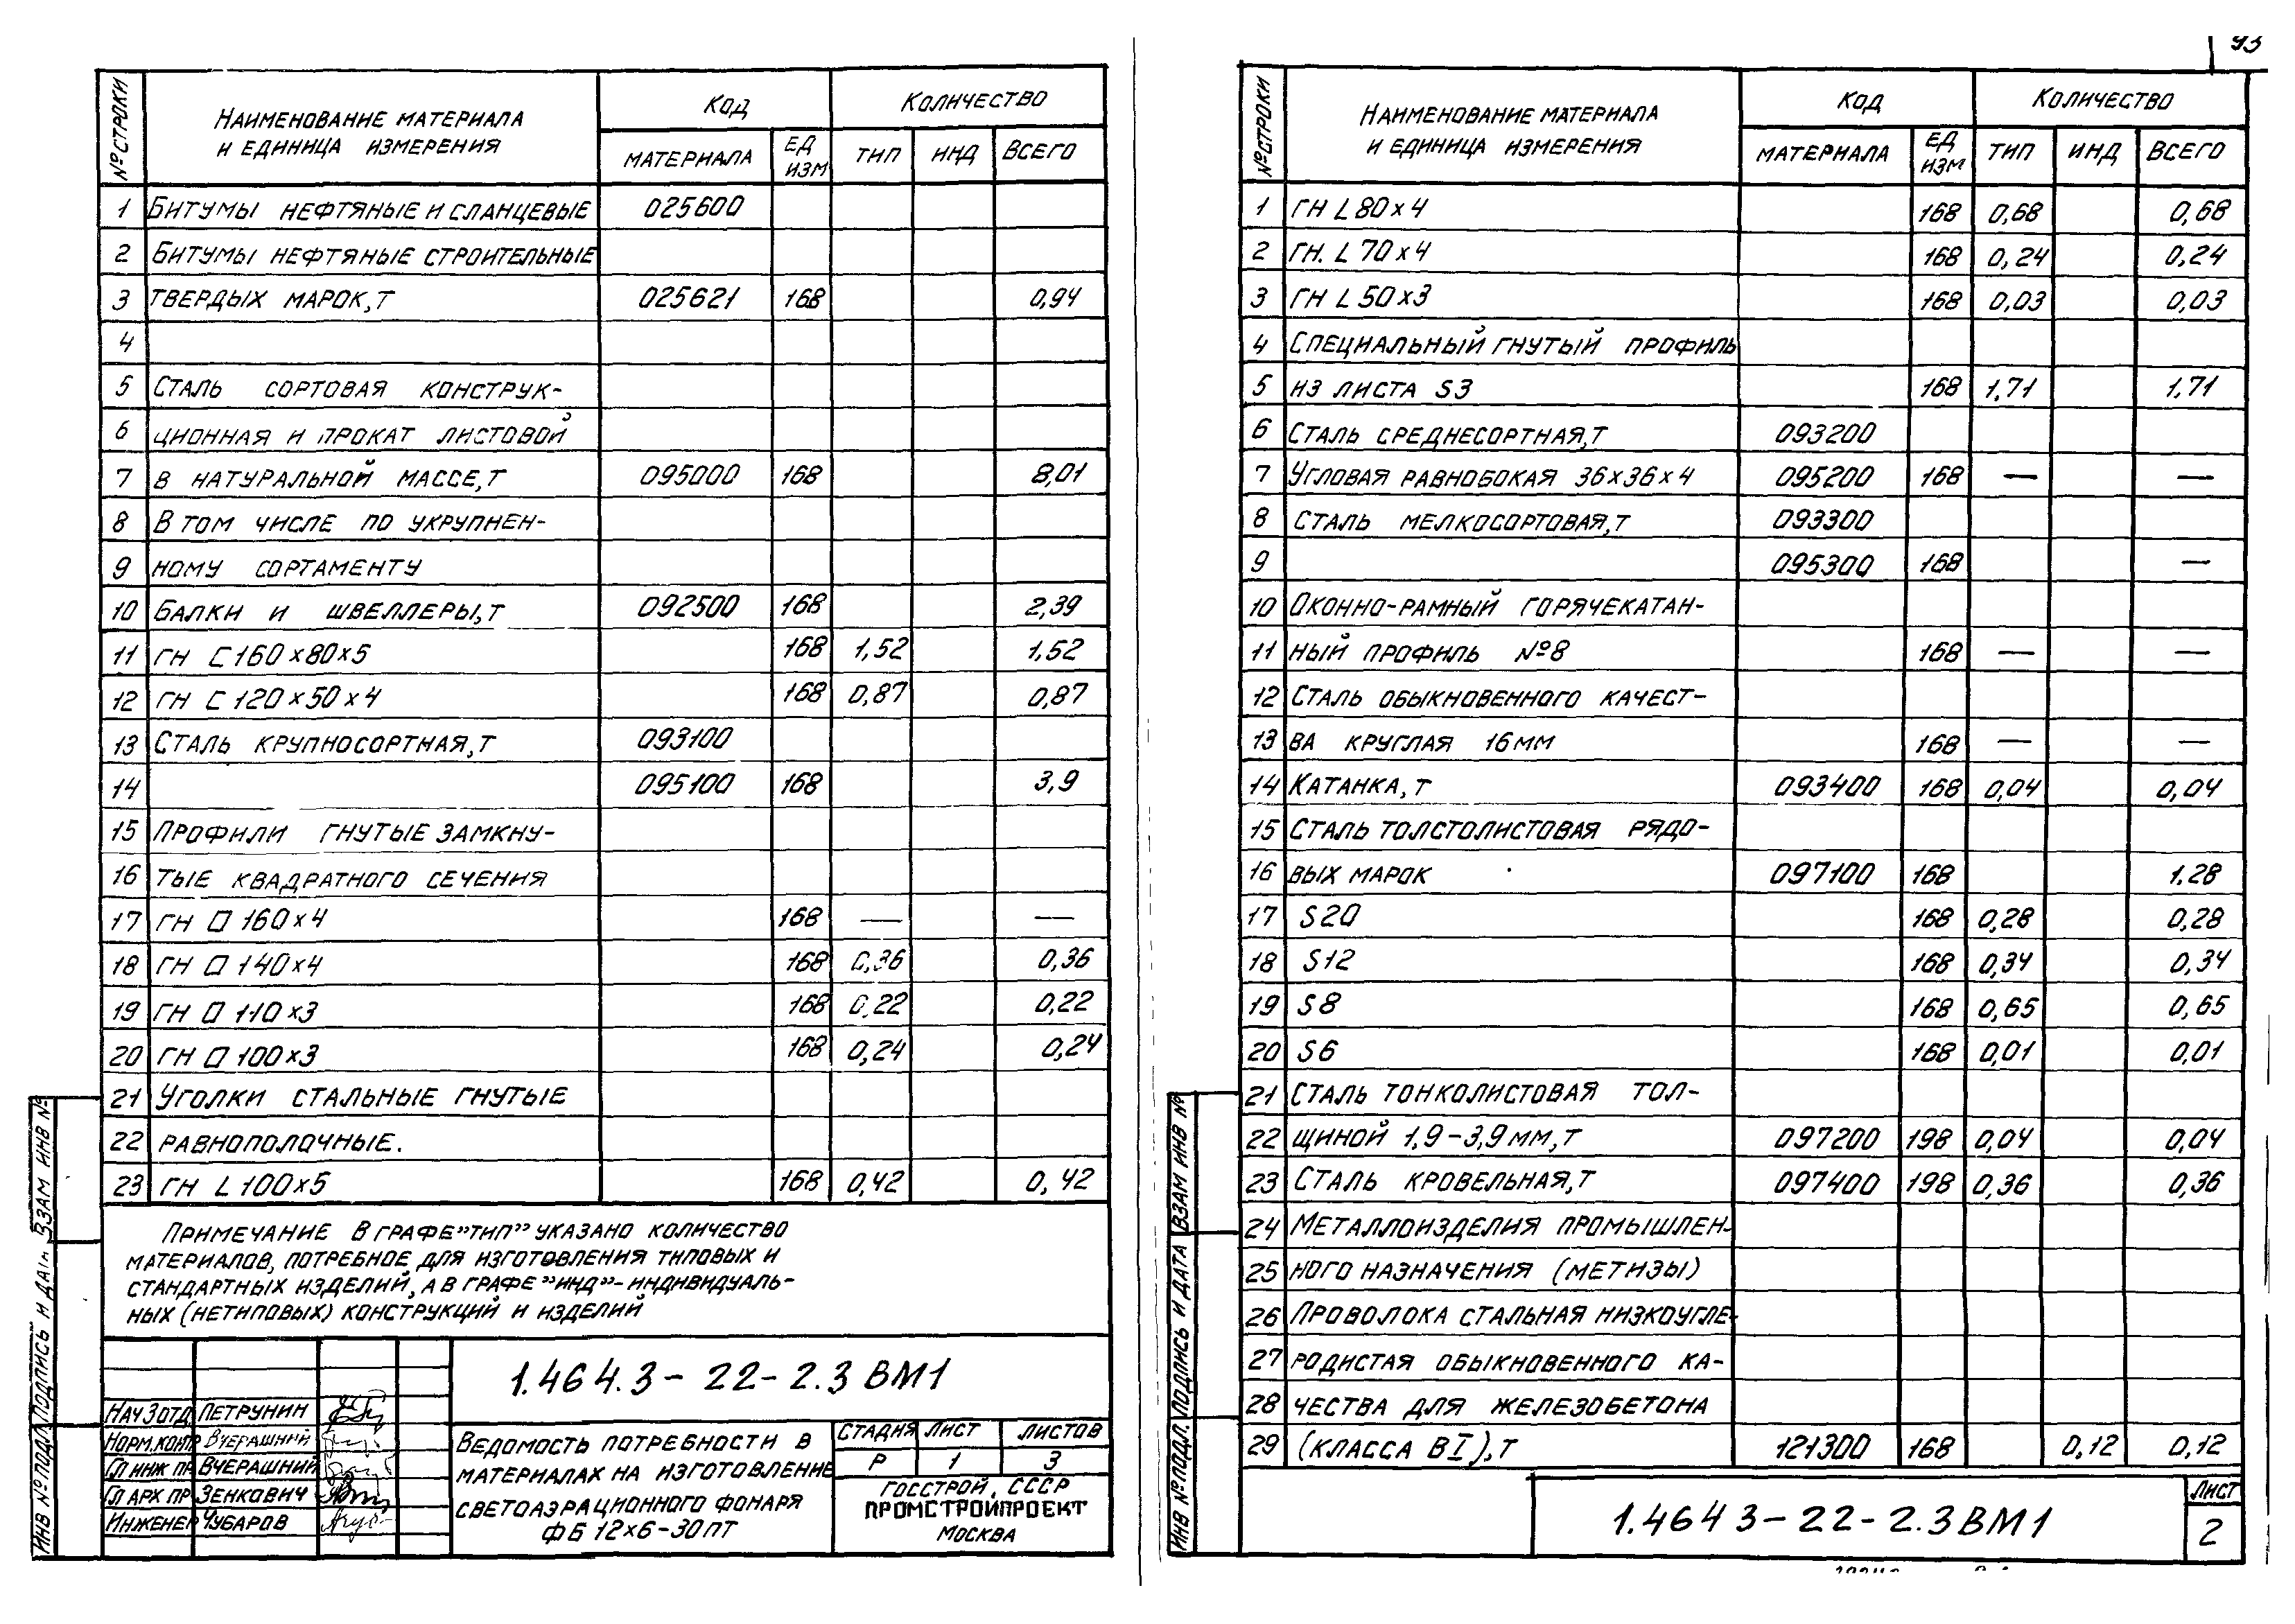 93
№ строки Наименование материала и единица измерения Код Количество
материала ед изм тип инд всего
1 Битумы нефтяные и сланцевые 025600
2 Битумы нефтяные строительные
3 твердых марок, т 025621 168 0,94
4
5 Сталь сортовая конструк-
6 ционная и прокат листовой
7 в натуральной массе, т 095000 168 8,01
8 В том числе по укрупнен-
9 ному сортаменту
10 Балки и швеллеры, т 092500 168 2,39
11 гн С 160×80×5 168 1,52 1,52
12 гн С 120×50×4 168 0,87 0,87
13 Сталь крупносортная, т 093100
14 095100 168 3,9
15 Профили гнутые замкну-
16 тые квадратного сечения
17 гн □ 160×4 168 — —
18 гн □ 140×4 168 0,36 0,36
19 гн □ 110×3 168 0,22 0,22
20 гн □ 100×3 168 0,24 0,24
21 Уголки стальные гнутые
22 равнополочные.
23 гн L 100×5 168 0,42 0,42
Примечание В графе "тип" указано количество
материалов, потребное для изготовления типовых и
стандартных изделий, а в графе "инд" - индивидуаль-
ных (нетиповых) конструкций и изделий
1.464.3-22-2.3 ВМ1
Нач 3 отд Петрунин
Норм.контр Вчерашний
Гл инж пр Вчерашний
Гл арх пр Зенкович
Инженер Чубаров
Ведомость потребности в
материалах на изготовление
светоаэрационного фонаря
ФБ 12×6-30ПТ
Стадия Лист Листов
Р 1 3
Госстрой, СССР
ПРОМСТРОЙПРОЕКТ
Москва
Инв № подл. Подпись и дата Взам инв №
№ строки Наименование материала и единица измерения Код Количество
материала ед изм тип инд всего
1 гн L 80×4 168 0,68 0,68
2 гн. L 70×4 168 0,24 0,24
3 гн L 50×3 168 0,03 0,03
4 Специальный гнутый профиль
5 из листа S3 168 1,71 1,71
6 Сталь среднесортная, т 093200
7 Угловая равнобокая 36×36×4 095200 168 — —
8 Сталь мелкосортовая, т 093300
9 095300 168 —
10 Оконно-рамный горячекатан-
11 ный профиль №8 168 — —
12 Сталь обыкновенного качест-
13 ва круглая 16мм 168 — —
14 Катанка, т 093400 168 0,04 0,04
15 Сталь толстолистовая рядо-
16 вых марок 097100 168 1.28
17 S20 168 0,28 0,28
18 S12 168 0,34 0,34
19 S8 168 0,65 0,65
20 S6 168 0,01 0,01
21 Сталь тонколистовая тол-
22 щиной 1,9-3,9мм, т 097200 198 0,04 0,04
23 Сталь кровельная, т 097400 198 0,36 0,36
24 Металлоизделия промышлен-
25 ного назначения (метизы)
26 Проволока стальная низкоугле-
27 родистая обыкновенного ка-
28 чества для железобетона
29 (класса ВI), т 121300 168 0,12 0,12
1.464 3-22-2.3 ВМ1
Лист
2
Инв № подл. Подпись и дата Взам инв №